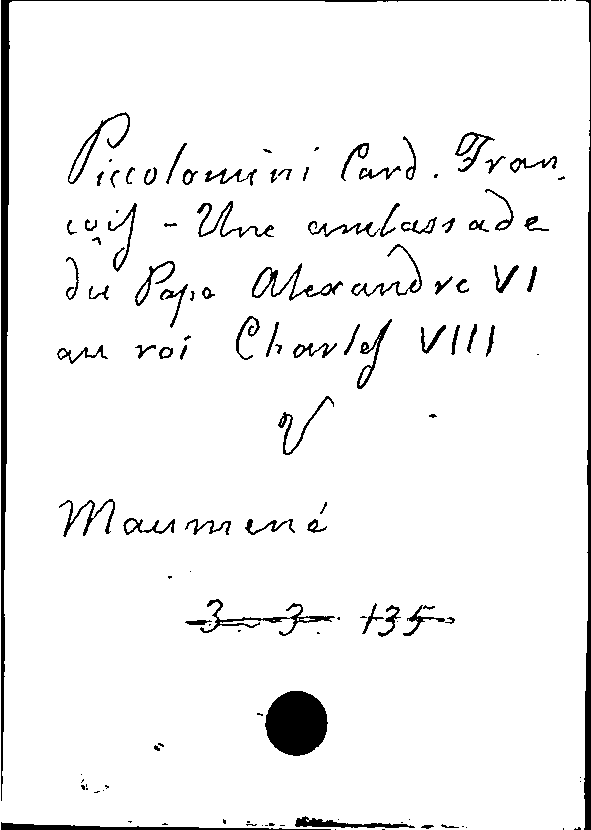 Piccolomini Card. Fran-
çois - Une ambassade
du Pape Alexandre VI
au roi Charles VIII
V
Maumené
3. 3. 135